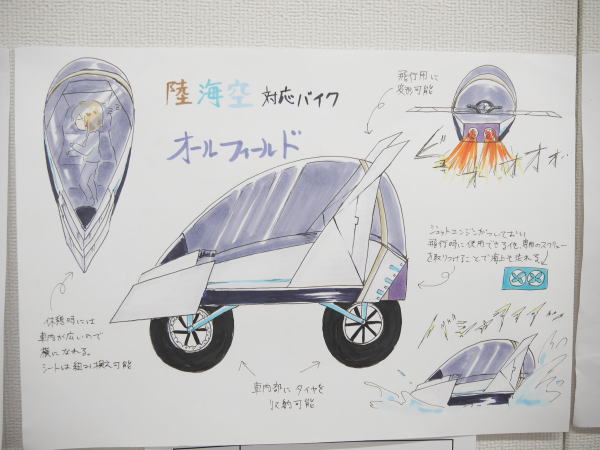 陸海空 対応バイク
オールフィールド
飛行用に
変形可能
ゴオオオオ
ジェットエンジンがついており
飛行時に使用できる他、専用のスクリュー
を取りつけることで海上も走れる。
休憩時には
車内が広いので
横になれる。
シートは組み換え可能
車内部にタイヤを
収納可能